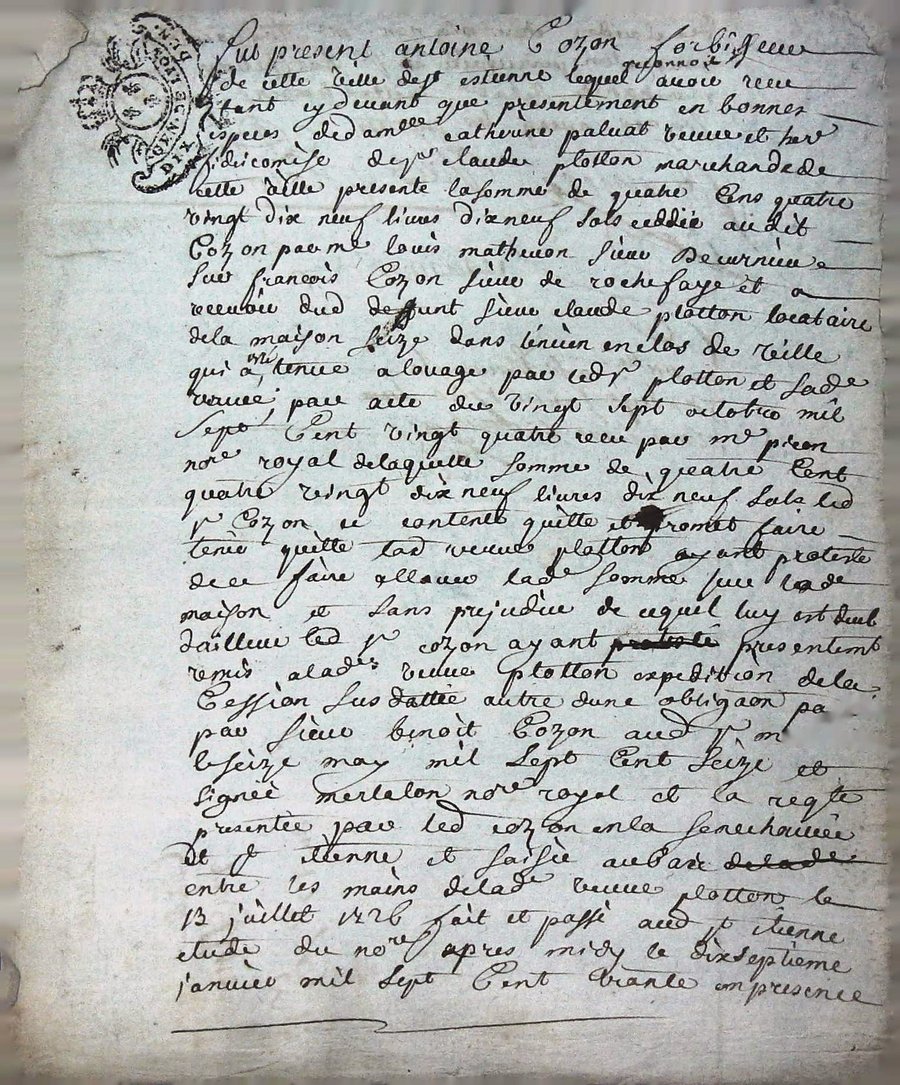 GEN. DIX
fut present antoine Cozon forbisseur
de cette ville de st estienne lequel reconnoit avoir receu
tant cy devant que presentement en bonnes
especes de damelle catherine paluat veuve et herre
fideicomise de sr claude plotton marchande de
cette ville presente la somme de quatre Cens quatre
vingt dix neuf livres dixneuf sols ceddée audit
Cozon par me louis matheuon sieur De
sur francois Cozon sieur de rochefaye et a
recevoir dud defunt sieur claude plotton locataire
de la maison seize dans lencien enclos de ville
qui a esté tenue a louage par led sr plotton et sade
veuve par acte du vingt sept octobre mil
sept Cent vingt quatre receu par me pieron
nore royal de laquelle somme de quatre Cent
quatre vingt dix neuf livres dix neuf sols led
sr Cozon se contente quitte et promet faire
tenir quitte lad veuve plotton ayant protesté
de ce faire allouer lade somme sur lade
maison et sans prejudice de cequel luy est deub
dailleur led sr cozon ayant presentemt
remis a lade veuve plotton expedition de la
Cession sus dattée autre dune obligaon pa
par sieur benoit Cozon aud sr m
le seize may mil sept Cent seize et
signée merlaton nore royal et la reqte
presentée par led cozon en la senechaucée
De st etienne et saisie au bas
entre les mains de lade veuve plotton le
13 juillet 1726 fait et passé aud st etienne
etude du nore apres midy le dixseptieme
janvier mil sept Cent trante en presence